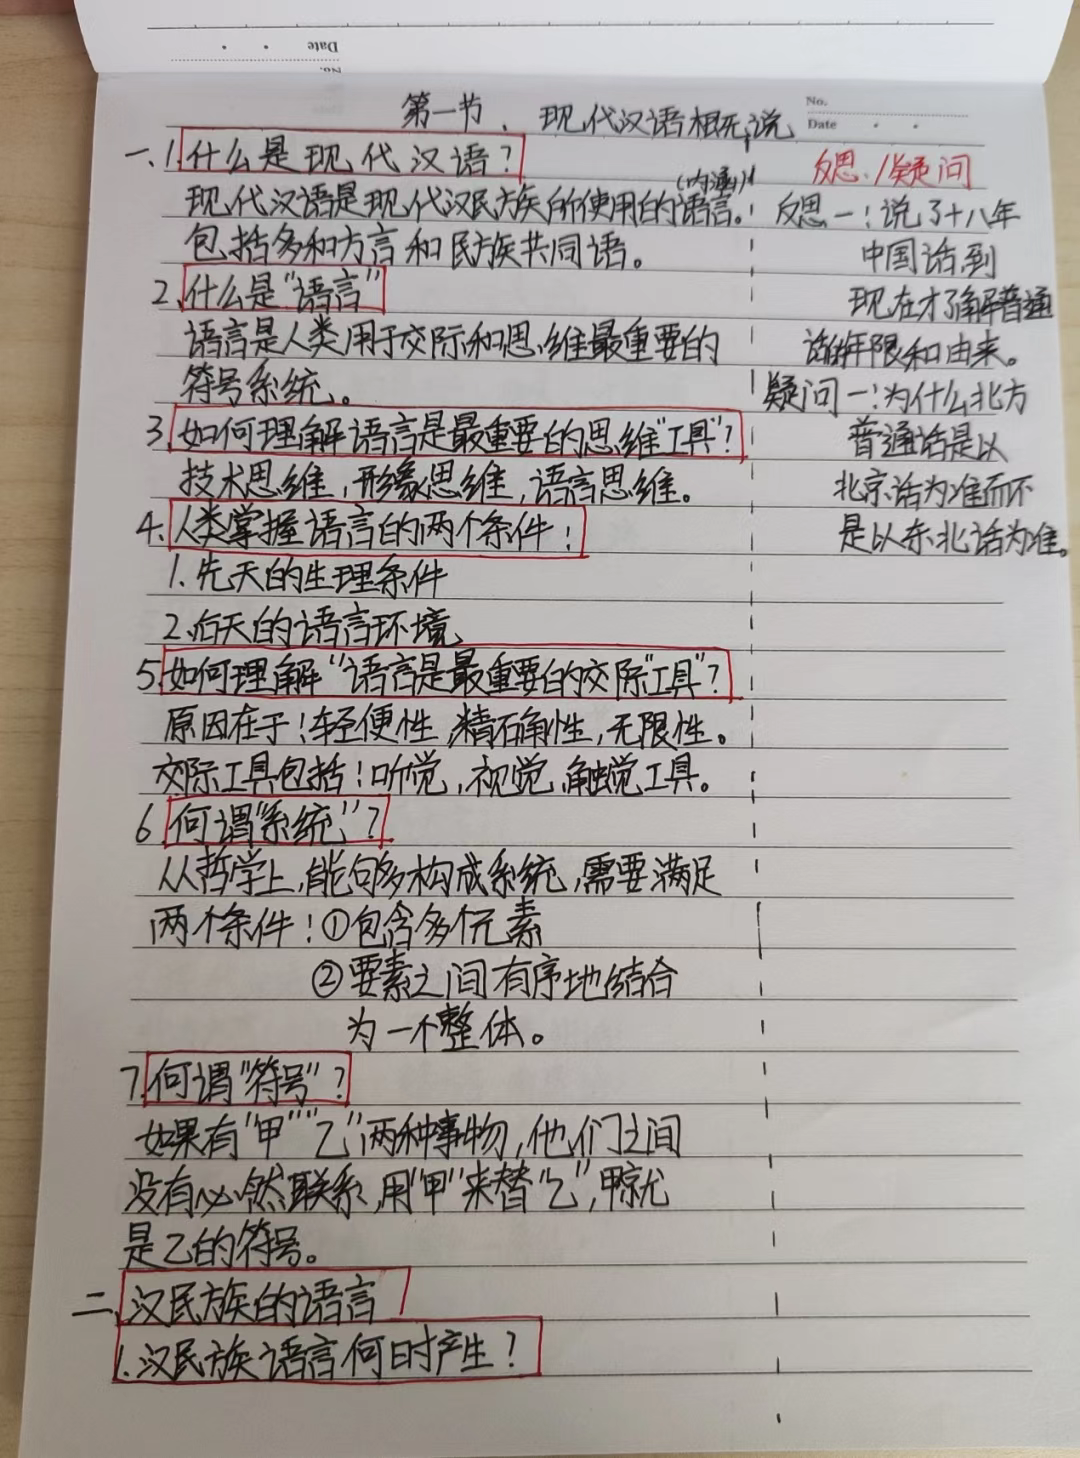 Date
No.
No.
Date
第一节、现代汉语概说
一、1.什么是现代汉语?
(内涵)
现代汉语是现代汉民族所使用的语言。
包括多和方言和民族共同语。
2、什么是“语言”
语言是人类用于交际和思维最重要的
符号系统。
3、如何理解语言是最重要的思维“工具”?
技术思维,形象思维,语言思维。
4、人类掌握语言的两个条件:
1.先天的生理条件
2.后天的语言环境、
5、如何理解“语言是最重要的交际“工具”?
原因在于:轻便性,精确性,无限性。
交际工具包括:听觉,视觉,触觉工具。
6、何谓“系统”?
从哲学上,能够构成系统,需要满足
两个条件:①包含多个元素
②要素之间有序地结合
为一个整体。
7.何谓“符号”?
如果有“甲”“乙”两种事物,他们之间
没有必然联系,用“甲”来替“乙”,甲就
是乙的符号。
二、汉民族的语言
1.汉民族语言何时产生?
反思、/疑问
反思一:说了十八年
中国话到
现在才了解普通
话的年限和由来。
疑问一:为什么北方
普通话是以
北京话为准而不
是以东北话为准。